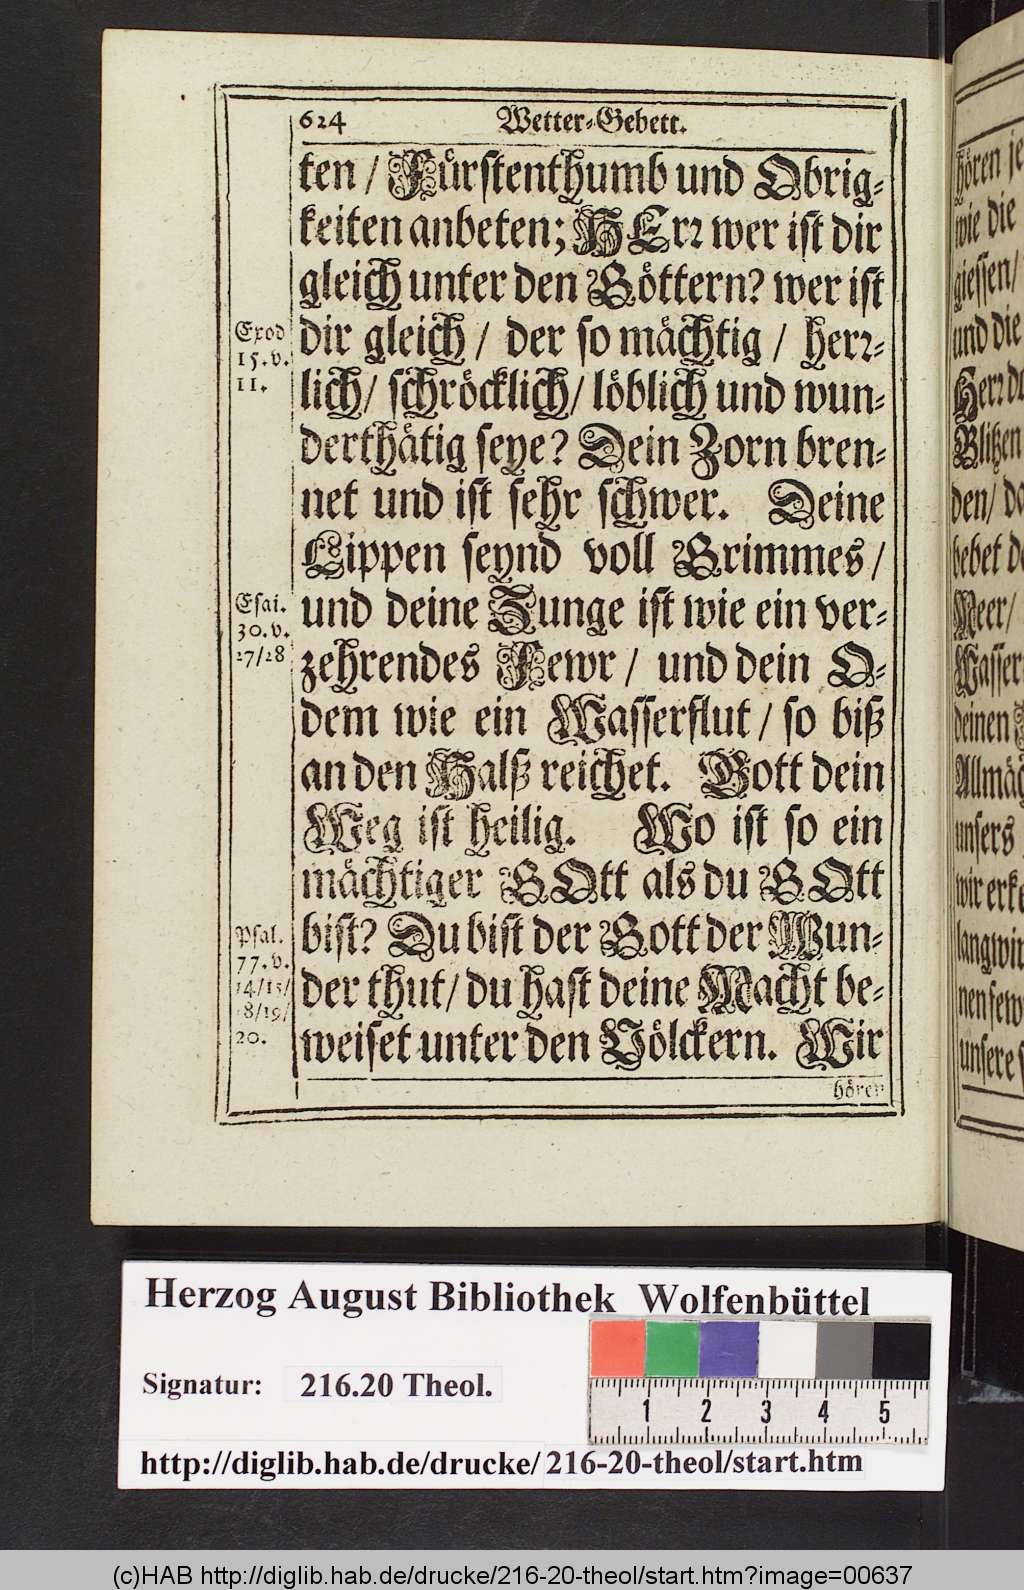 624 Wetter-Gebett.
ten / Fürstenthumb und Obrig-
keiten anbeten; HErr wer ist dir
gleich unter den Göttern? wer ist
dir gleich / der so mächtig / herr-
lich / schröcklich / löblich und wun-
derthätig seye? Dein Zorn bren-
net und ist sehr schwer. Deine
Lippen seynd voll Grimmes /
und deine Zunge ist wie ein ver-
zehrendes Fewr / und dein O-
dem wie ein Wasserflut / so biß
an den Halß reichet. Gott dein
Weg ist heilig. Wo ist so ein
mächtiger GOtt als du GOtt
bist? Du bist der Gott der Wun-
der thut / du hast deine Macht be-
weiset unter den Völckern. Wir
hören
Exod
15. v.
11.
Esai.
30. v.
27/28
Psal.
77. v.
14/15/
18/19/
20.
hören je
wie die
giessen /
und die
Herr do
Blitzen
den / da
bebet de
Meer /
Wasser
deinen
Allmäch
unsers
wir erke
langwir
nen sew
unsere s
Herzog August Bibliothek Wolfenbüttel
Signatur: 216.20 Theol.
1 2 3 4 5
http://diglib.hab.de/drucke/ 216-20-theol/start.htm
(c)HAB http://diglib.hab.de/drucke/216-20-theol/start.htm?image=00637